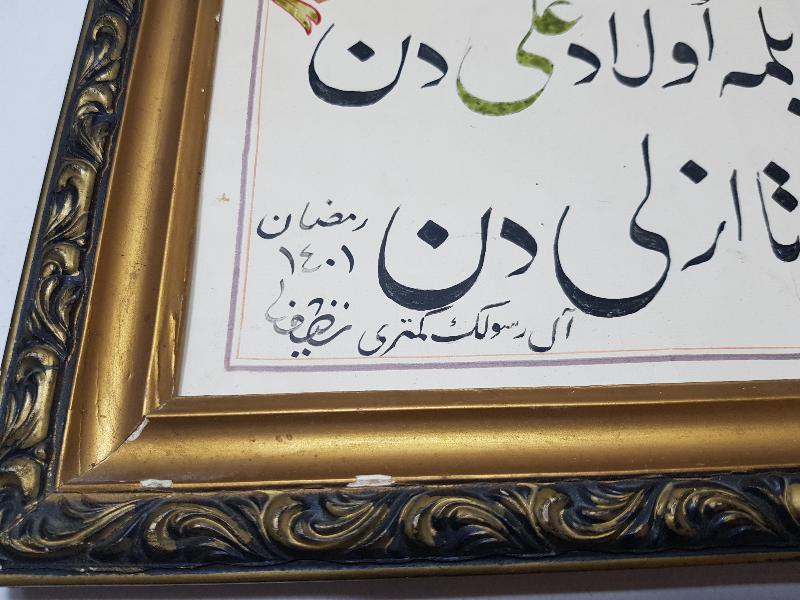 بلمه أولاد علی دن
تا ازلی دن
رمضان
١٤٠١
آل رسولك كمتری